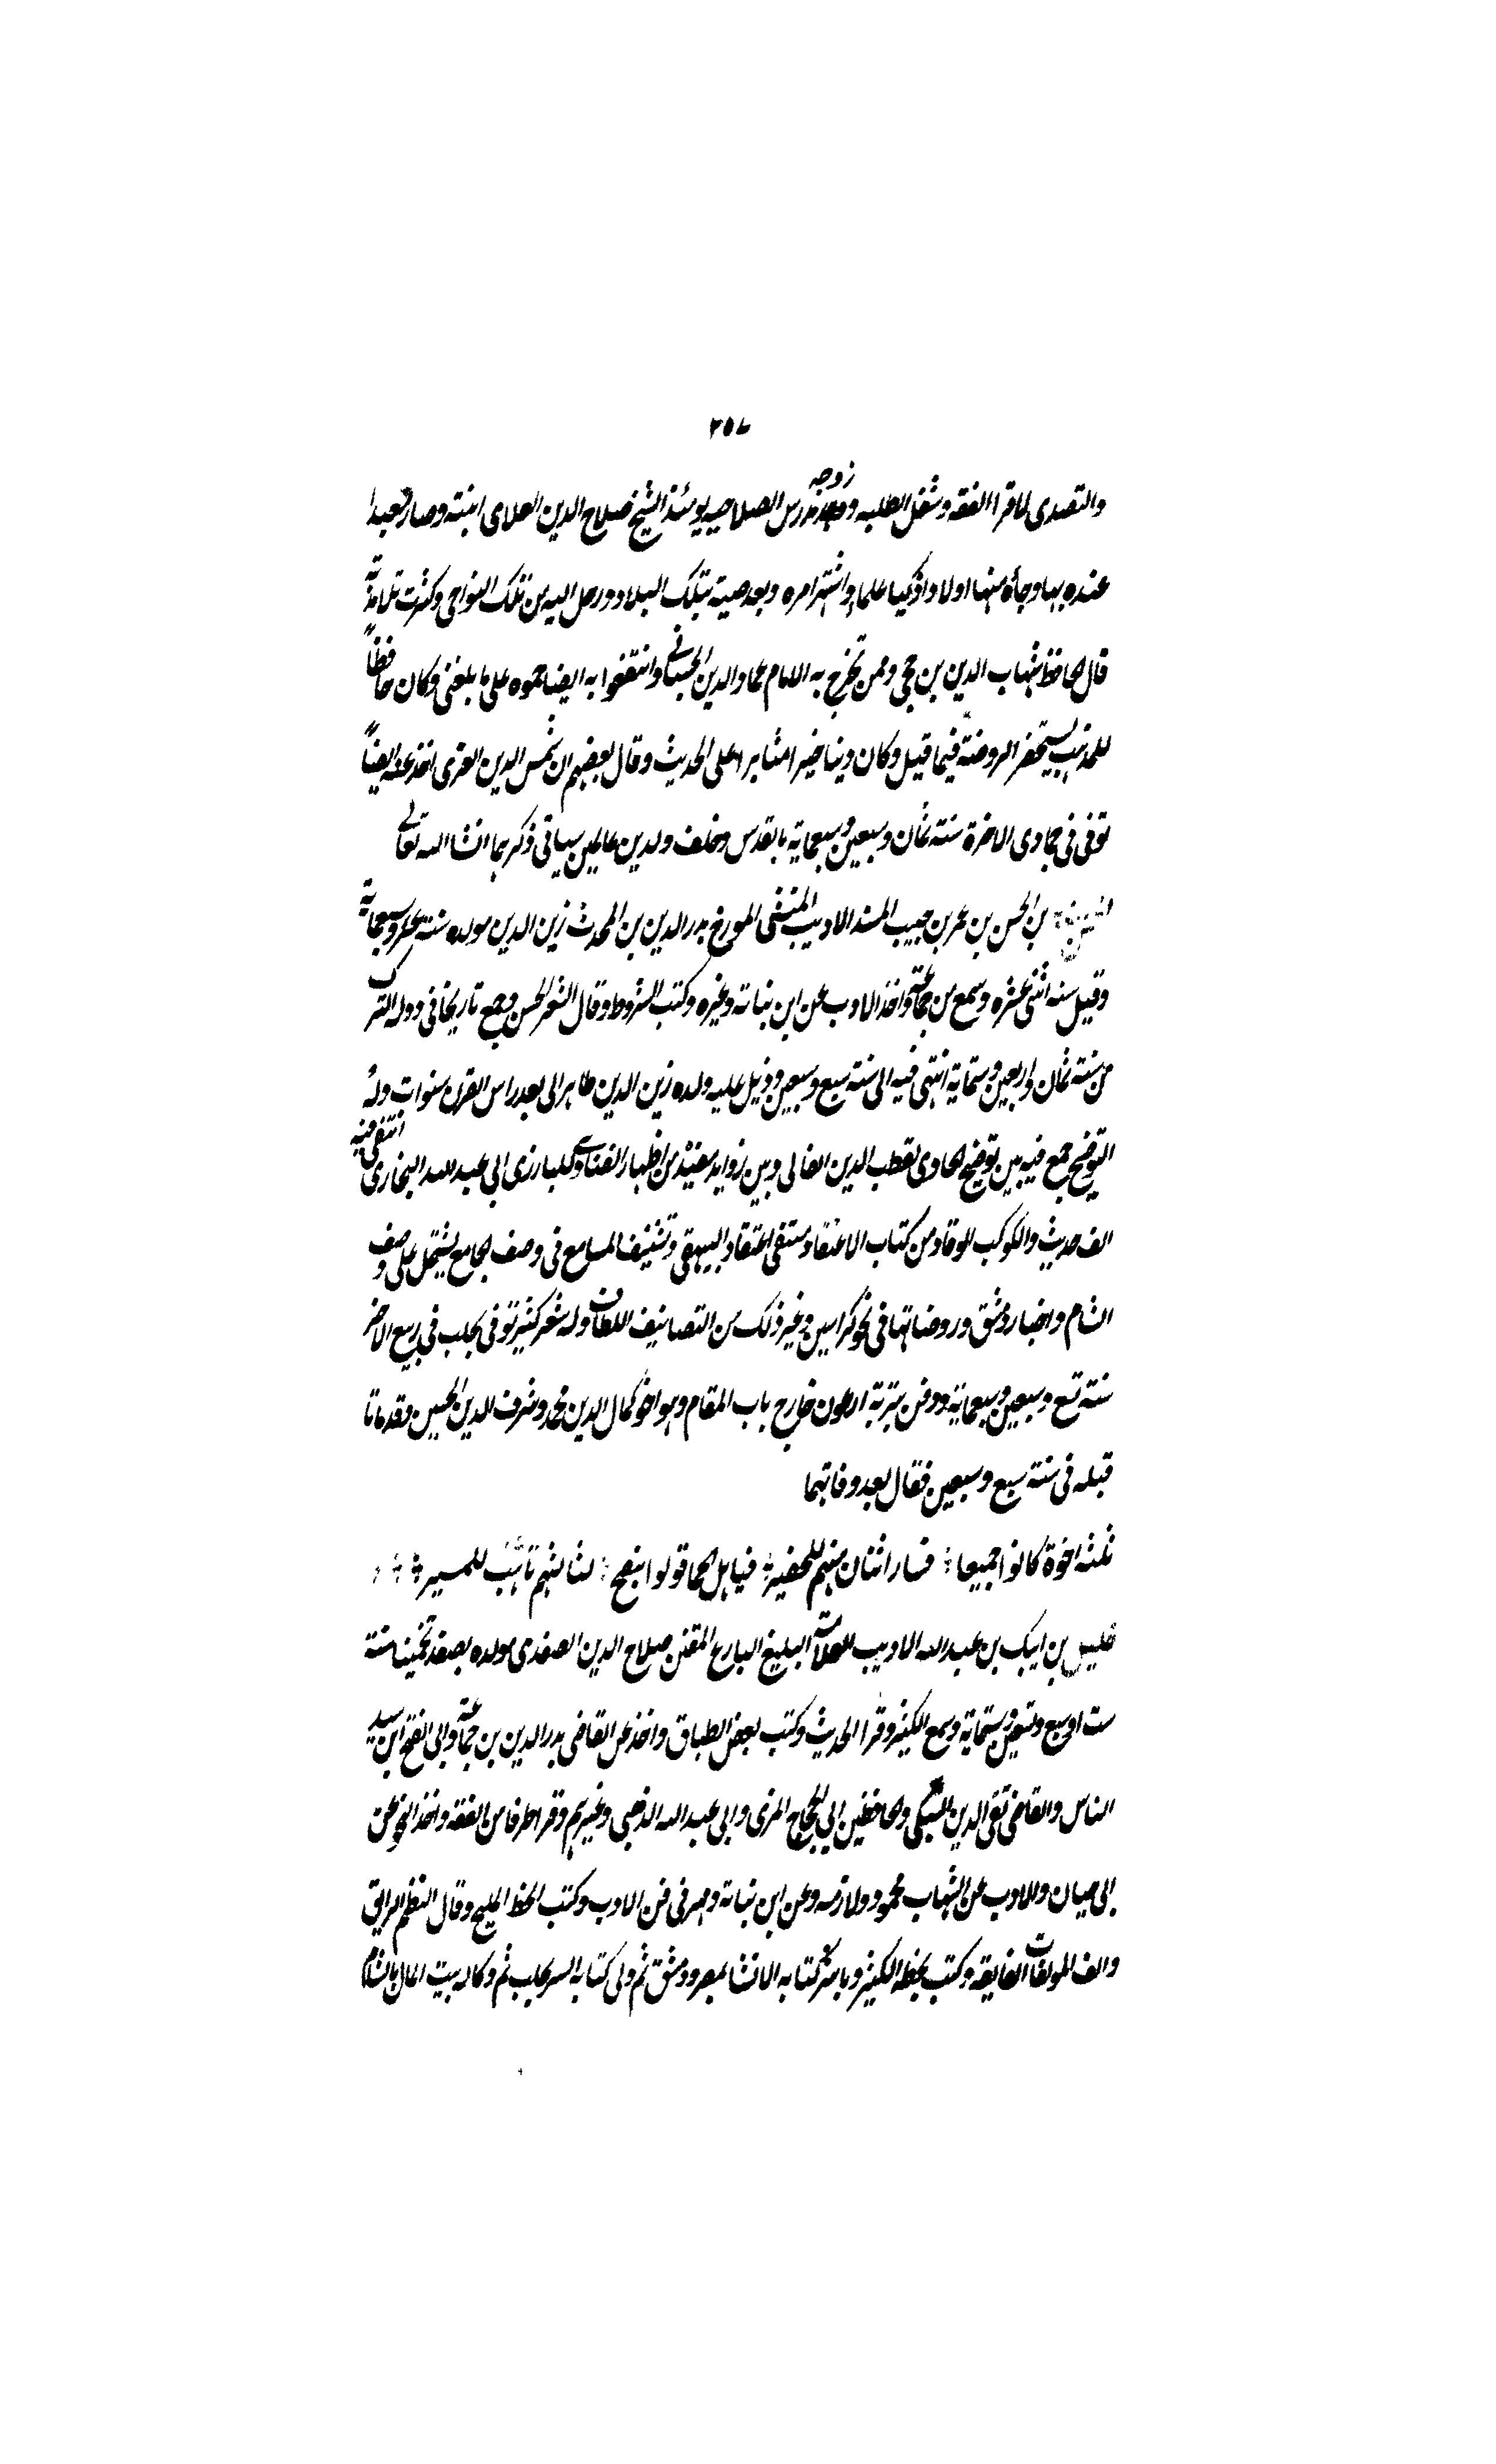 ٢٥٨
والتصدى لاقرا الفقه وشغل الطلبه وزوجه مدرس الصلاحيه يومئذ الشيخ صلاح الدين العلاى ابنته وصار معيدا
عنده بها وجأه منها اولاد اذكيا علماء واشتهر امره وبعد صيته بتلك البلاد ورحل اليه من تلك النواحى وكثرت تلامذته
قال الحافظ شهاب الدين بن حجى وممن تخرج به الامام عماد الدين الحسبانى وانتفعوا به ايضا حموه على ما بلغنى وكان حافظاً
للمذهب يستحضر الروضة فيما قيل وكان دينا خيرا مثابرا على الحديث وقال بعضهم ان شمس الدين الغزى اخذ عنه ايضاً
توفى فى جمادى الاخرة سنة ثمان وسبعين وسبعماية بالقدس وخلف ولدين عالمين سياتى ذكرهما انشا الله تعالى
بن الحسن بن عمر بن حبيب المسند الاديب المنشى المورخ بدر الدين بن المحدث زين الدين مولده سنة عشر وسبعماية
وقيل سنه اثنى عشره وسمع من جماعة واخذ الادب عن ابن نباتة وغيره وكتب الشروط وقال الشعر الحسن وجمع تاريخا فى دوله الترك
من سنة ثمان واربعين وستماية انتهى فيه الى سنة سبع وسبعين وذيل عليه ولده زين الدين طاهر الى بعد راس القرن سنوات وله
التوضيح جمع فيه بين توضيح الحاوى لقطب الدين الفالى وبين زوايد مفيدة من اظهار الفتاوى للبارزى ابى عبد الله البخارى انتقى فيه
الف حديث والكوكب الوقاد من كتاب الاعتقاد منتقى اعتقاد البيهقى وتشنيف المسامع فى وصف الجامع يشتمل على وصف
الشام واخبار دمشق وروضاتها فى نحو كراسين وغير ذلك من التصانيف اللطاف وله شعر كثير توفى بحلب فى ربيع الاخر
سنة تسع وسبعين وسبعماية ودفن بتربة ارغون خارج باب المقام وهو اخو كمال الدين محمد وشرف الدين الحسين وقد ماتا
قبله فى سنة سبع وسبعين فقال بعد وفاتهما
ثلثه اخوة كانوا جميعا فسار اثنان منهم للحفير فيا اهل الحما قولوا بنصح لثالثهم تاهب للمسير
خليل بن ايبك بن عبد الله الاديب العلامة البليغ البارع المفنن صلاح الدين الصفدى مولده بصفد تخمينا سنة
ست او سبع وتسعين وستماية وسمع الكثير وقرا الحديث وكتب بعض الطباق واخذ عن القاضى بدر الدين بن جماعة وابى الفتح ابن سيد
الناس والقاضى تقى الدين السبكى والحافظين ابى الحجاج المزى وابى عبد الله الذهبى وغيرهم وقرا طرفا من الفقه واخذ النحو عن
ابى حيان والادب عن الشهاب محمود ولازمه وعن ابن نباتة ومهر فى فن الادب وكتب الخط المليح وقال النظم الرايق
والف المولفات الفايقة وكتب بخطه الكثير وباشر كتابه الانشا بمصر ودمشق ثم ولى كتابه السر بحلب ثم وكاله بيت المال بالشام